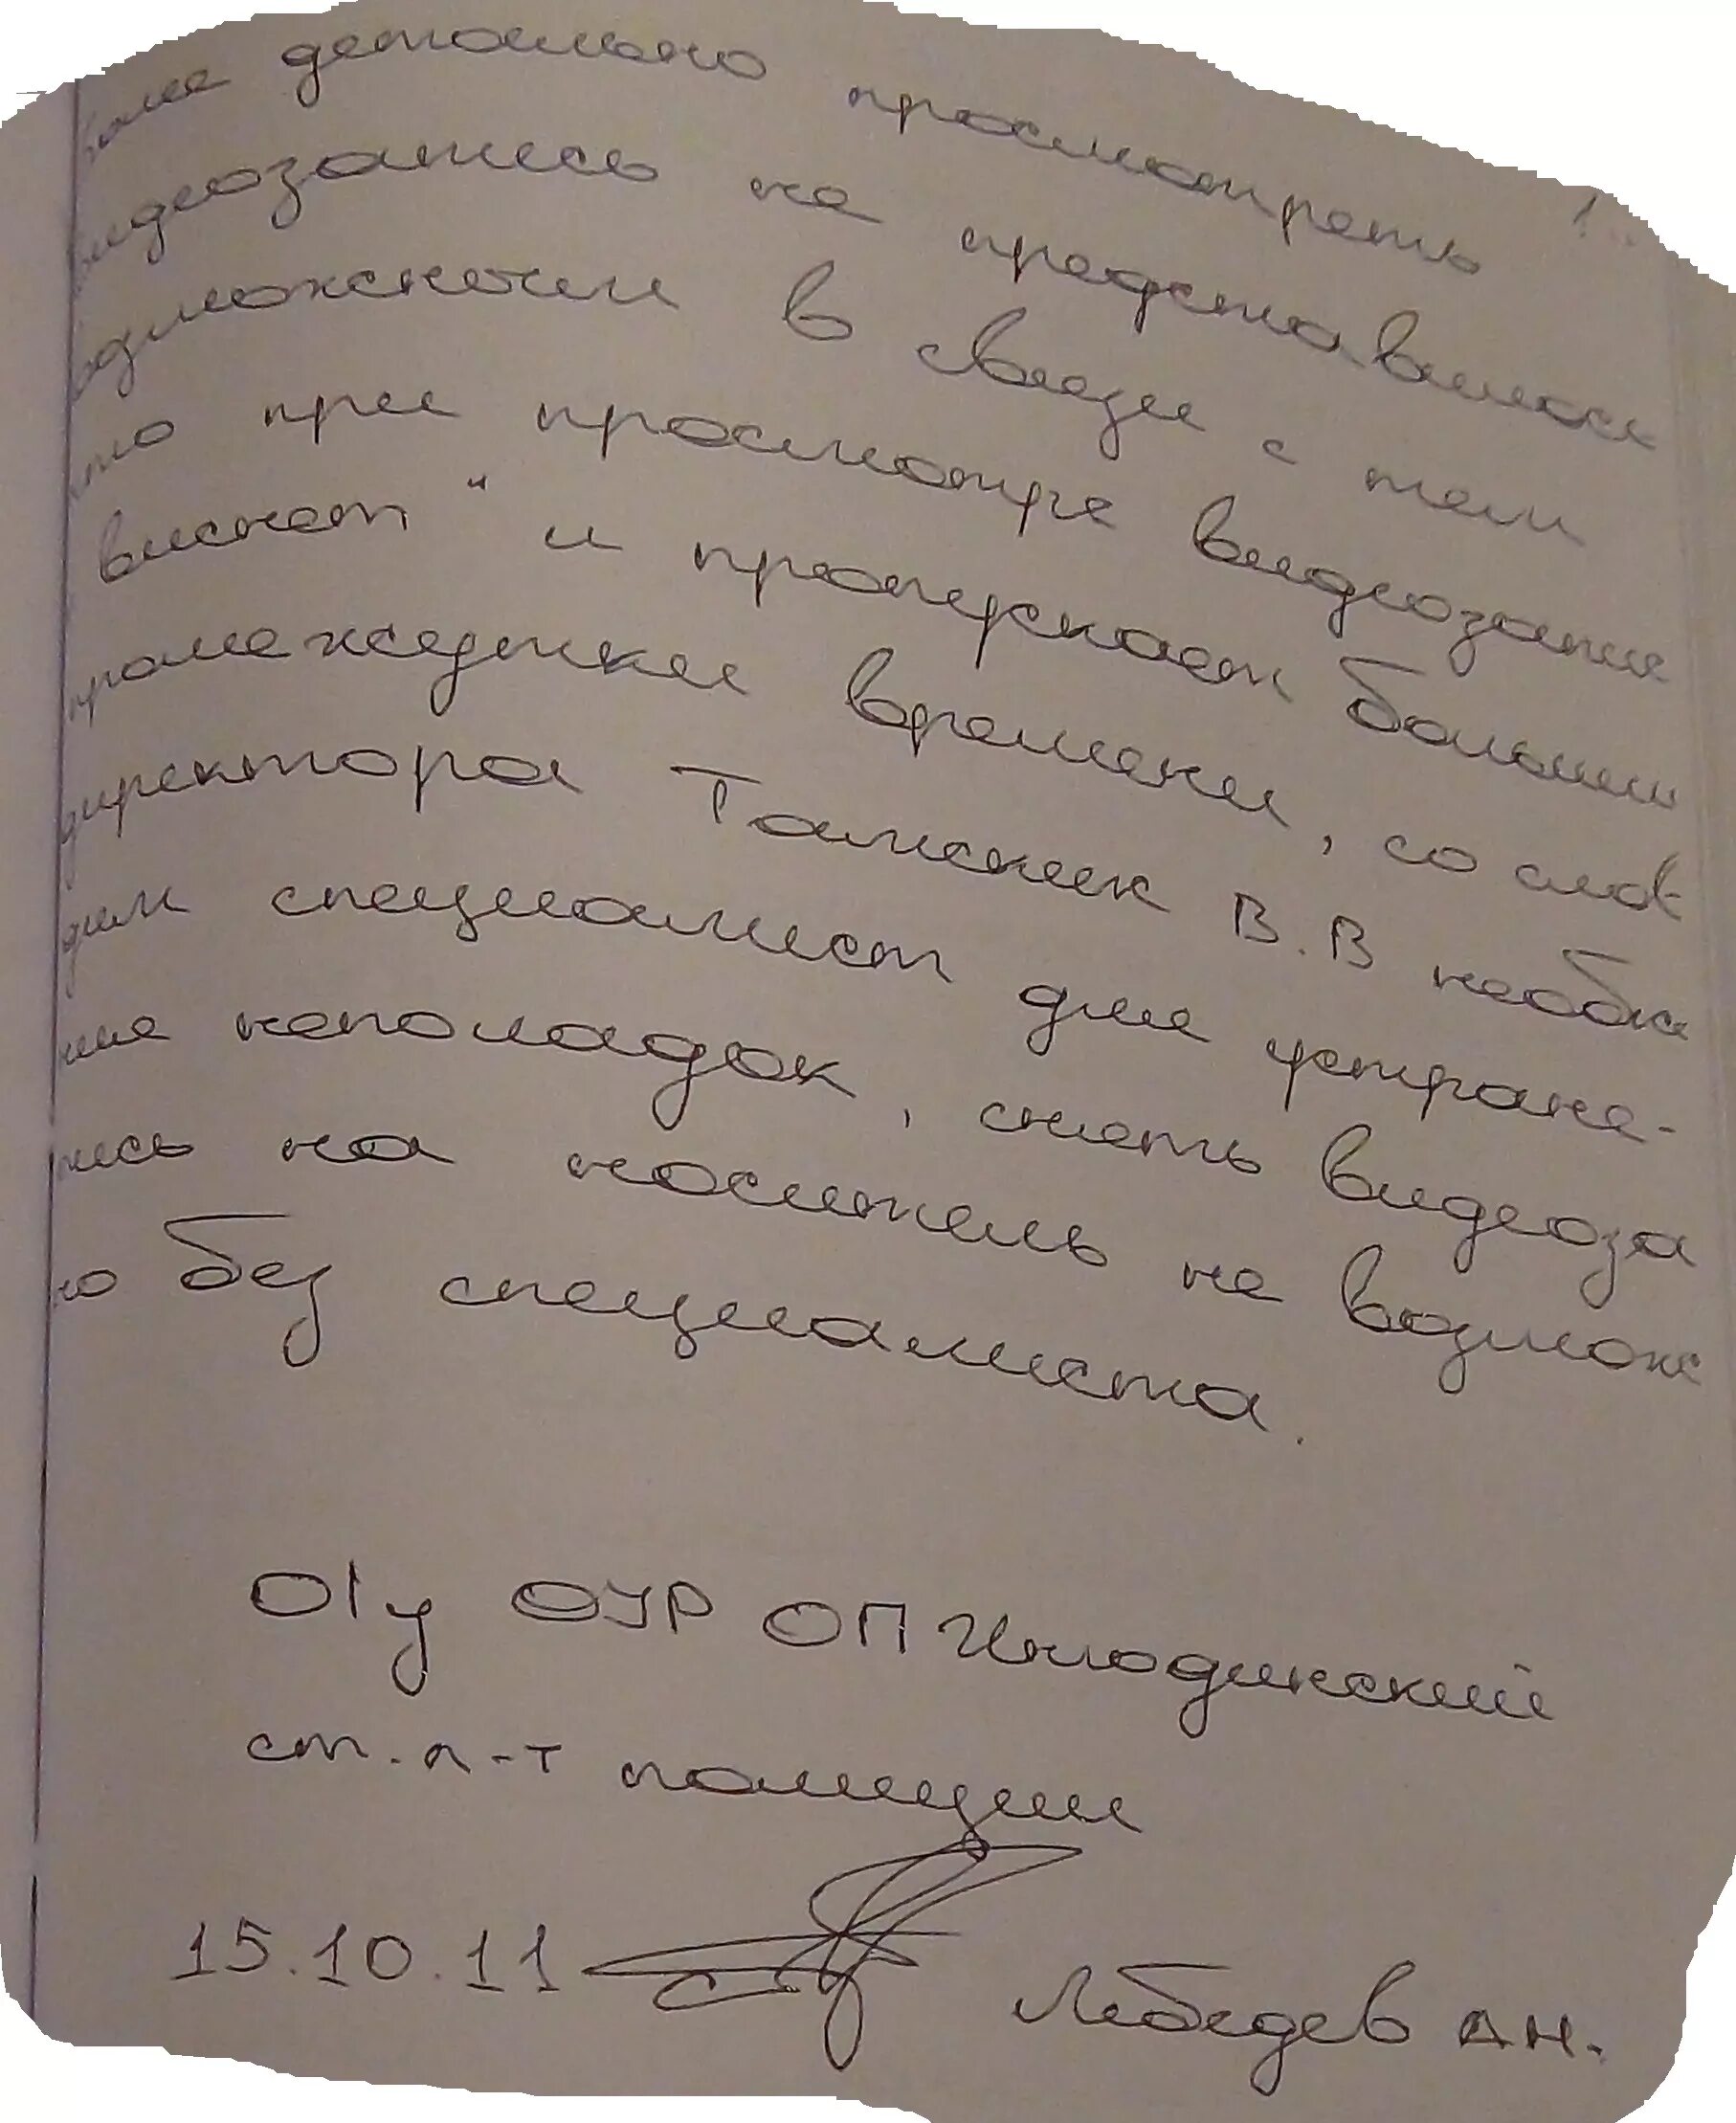 более детально просмотреть
видеозапись не представилось
возможности в связи с тем
что при просмотре видеозапи
виснет" и пропускает большие
промежудки времени, со слов
директора В.В необхо
дим специалист для устране-
ние неполадок, снять видеоза
пись на носитель не возмож
но без специалиста.
О/у ОУР ОП
ст. л-т полиции
15.10.11 Лебедев АН.